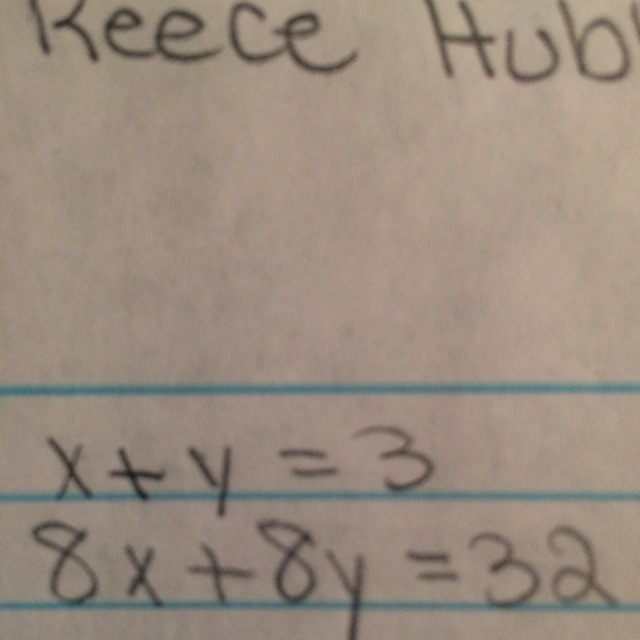 Reece Hub
x + y = 3
8x + 8y = 32